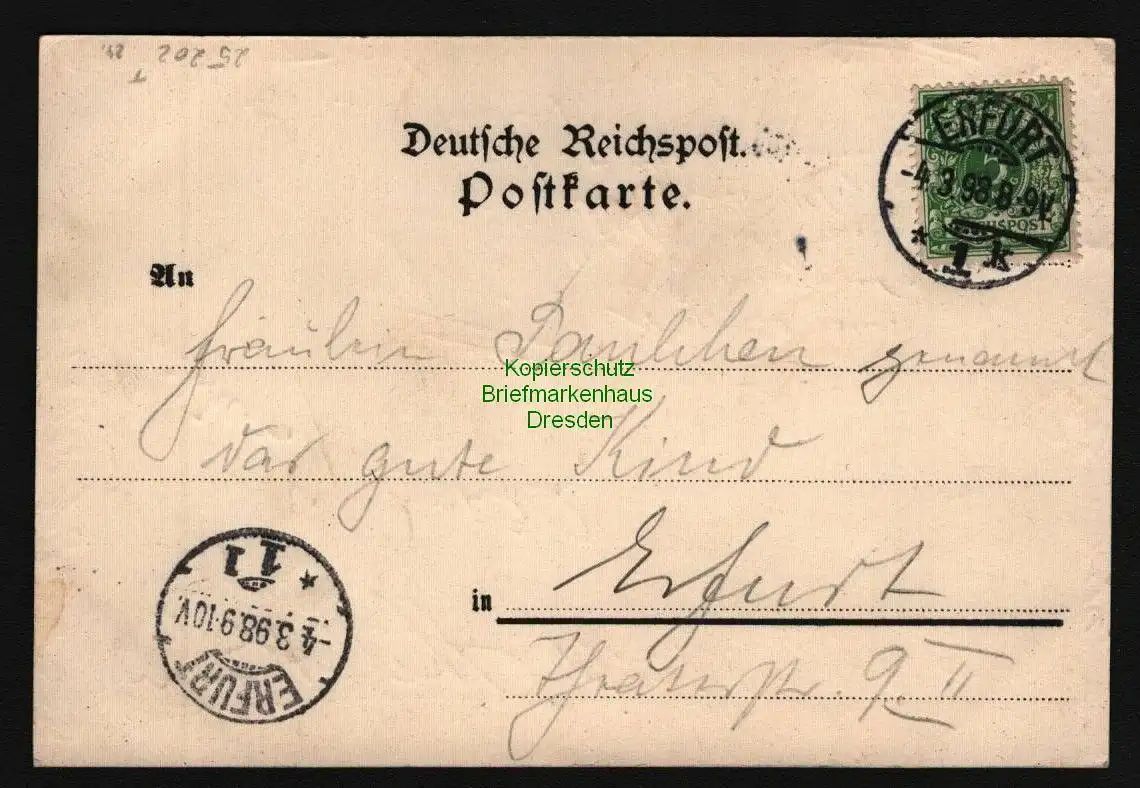 25 202
Deutsche Reichspost.
Postkarte.
ERFURT
-4.3.98.8-9V.
* 1 k
5
REICHSPOST
An
Fräulein Paulchen genannt
Kopierschutz
Briefmarkenhaus
Dresden
das gute Kind
in Erfurt
Theaterstr. 9 II
ERFURT
-4.3.98.9-10V.
* 11